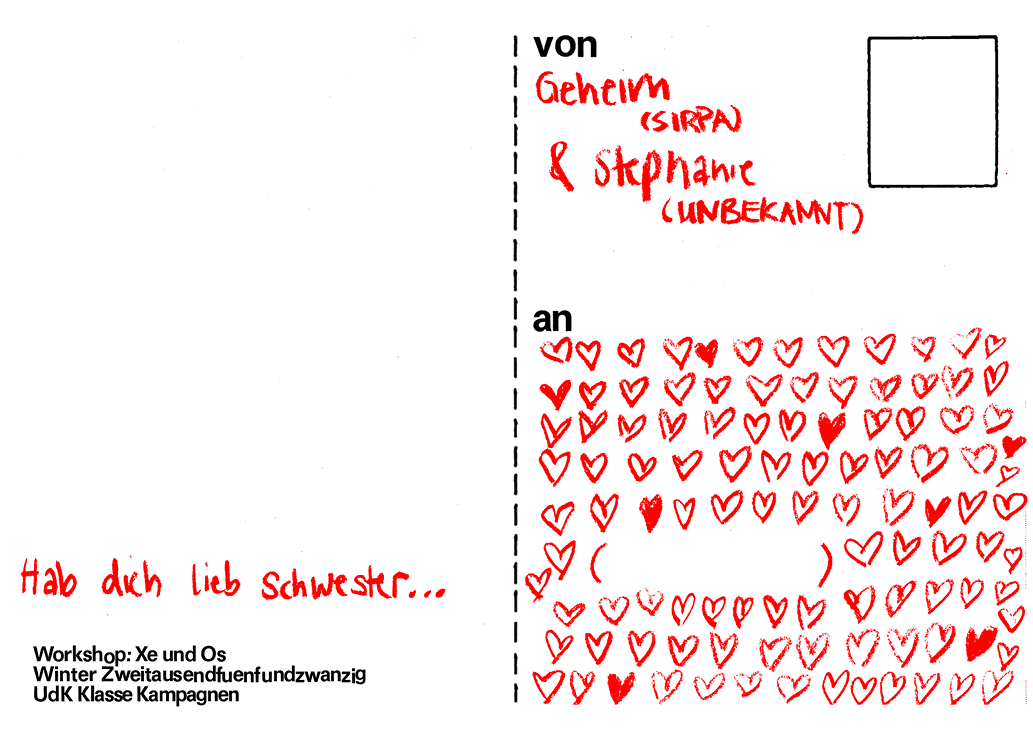 Hab dich lieb schwester...
Workshop: Xe und Os
Winter Zweitausendfuenfundzwanzig
UdK Klasse Kampagnen
von
Geheim
(SIRPA)
& Stephanie
(UNBEKANNT)
an
( )